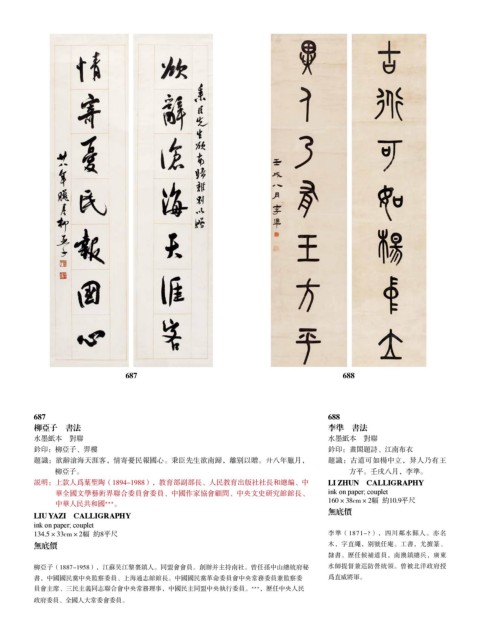 欲辭滄海天涯客
秉臣先生欲南歸離別以贈
情寄憂民報國心
廿八年臘月柳亞子
古誼可如楊中立
異人乃有王方平
壬戌八月李準
687
688
687
柳亞子　書法
水墨紙本　對聯
鈐印：柳亞子、羿樓
題識：欲辭滄海天涯客，情寄憂民報國心。秉臣先生欲南歸，離別以贈。廿八年臘月，
柳亞子。
說明：上款人爲葉聖陶（1894-1988），教育部副部長、人民教育出版社社長和總編、中
華全國文學藝術界聯合委員會委員、中國作家協會顧問、中央文史研究館館長、
中華人民共和國***。
LIU YAZI　CALLIGRAPHY
ink on paper; couplet
134.5×33cm×2幅　約8平尺
無底價
柳亞子（1887-1958），江蘇吳江黎裏鎮人。同盟會會員。創辦并主持南社。曾任孫中山總統府秘
書，中國國民黨中央監察委員、上海通志館館長。中國國民黨革命委員會中央常務委員兼監察委
員會主席。三民主義同志聯合會中央常務理事，中國民主同盟中央執行委員。***，歷任中央人民
政府委員、全國人大常委會委員。
688
李準　書法
水墨紙本　對聯
鈐印：畫閣題詩、江南布衣
題識：古道可如楊中立，异人乃有王
方平。壬戌八月，李準。
LI ZHUN　CALLIGRAPHY
ink on paper; couplet
160×38cm×2幅　約10.9平尺
無底價
李準（1871-?），四川鄰水縣人。亦名
木，字直繩，別號任庵。工書，尤擅篆、
隸書。歷任候補道員，南澳鎮總兵，廣東
水師提督兼巡防營統領。曾被北洋政府授
爲直威將軍。